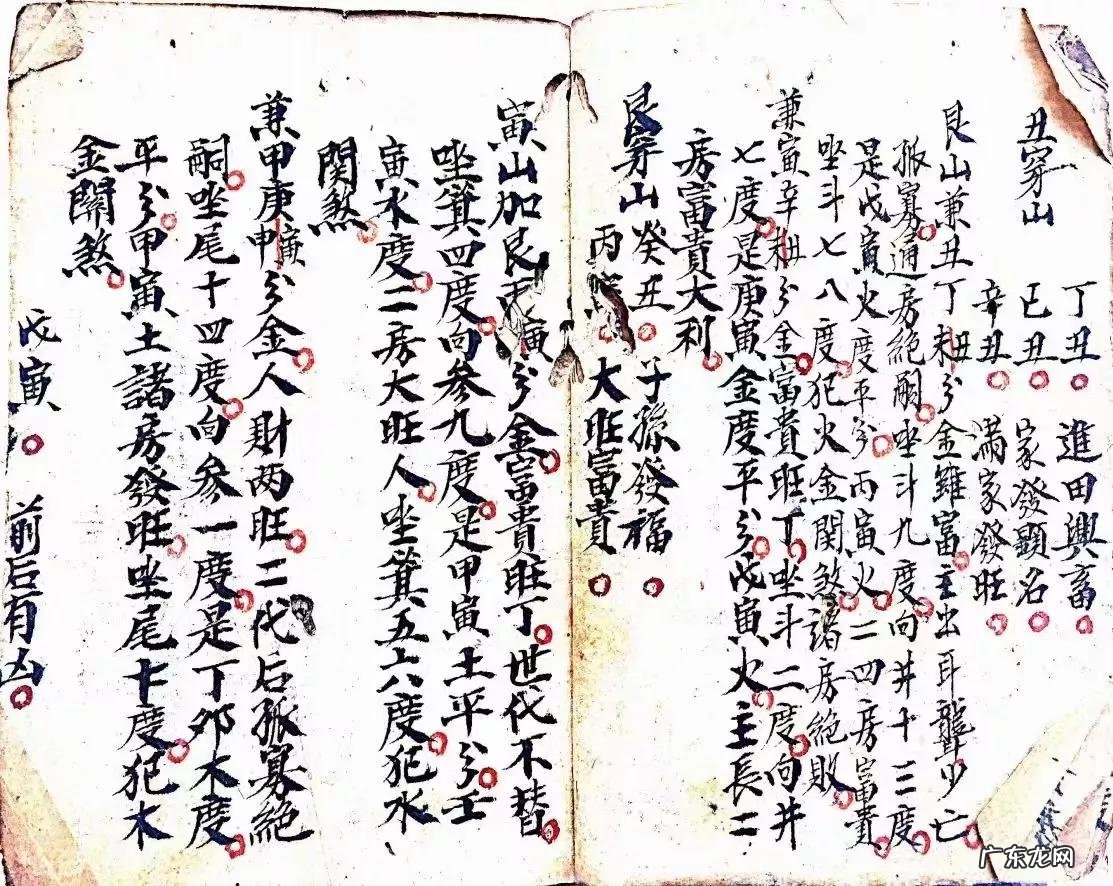 丑穿山
丁丑 進田興畜
己丑 家發顯名
辛丑 滿家發旺
艮山兼丑丁丑丁未分金雖富主出耳聾少亡
孤寡通房絕嗣坐斗九度向井十三度
是戊寅火度平分丙寅火二四房富貴
坐斗七八度犯火金関煞諸房絕敗
兼寅辛丑辛未分金富貴旺丁坐斗二度向井
七度是庚寅金度平分戊寅火主長二
房富貴大利
艮穿山 癸丑 子孫發福
丙 大旺富貴
寅山加艮丙寅分金富貴旺丁世代不替
坐箕四度向參九度是甲寅土平分壬
寅水度二房大旺人坐箕五六度犯水
関煞
兼甲庚寅庚申分金人財两旺二代后孤寡絕
嗣坐尾十四度向参一度是丁卯木度
平分甲寅土諸房發旺坐尾十度犯木
金關煞
戊寅 前后有凶
广东龙网